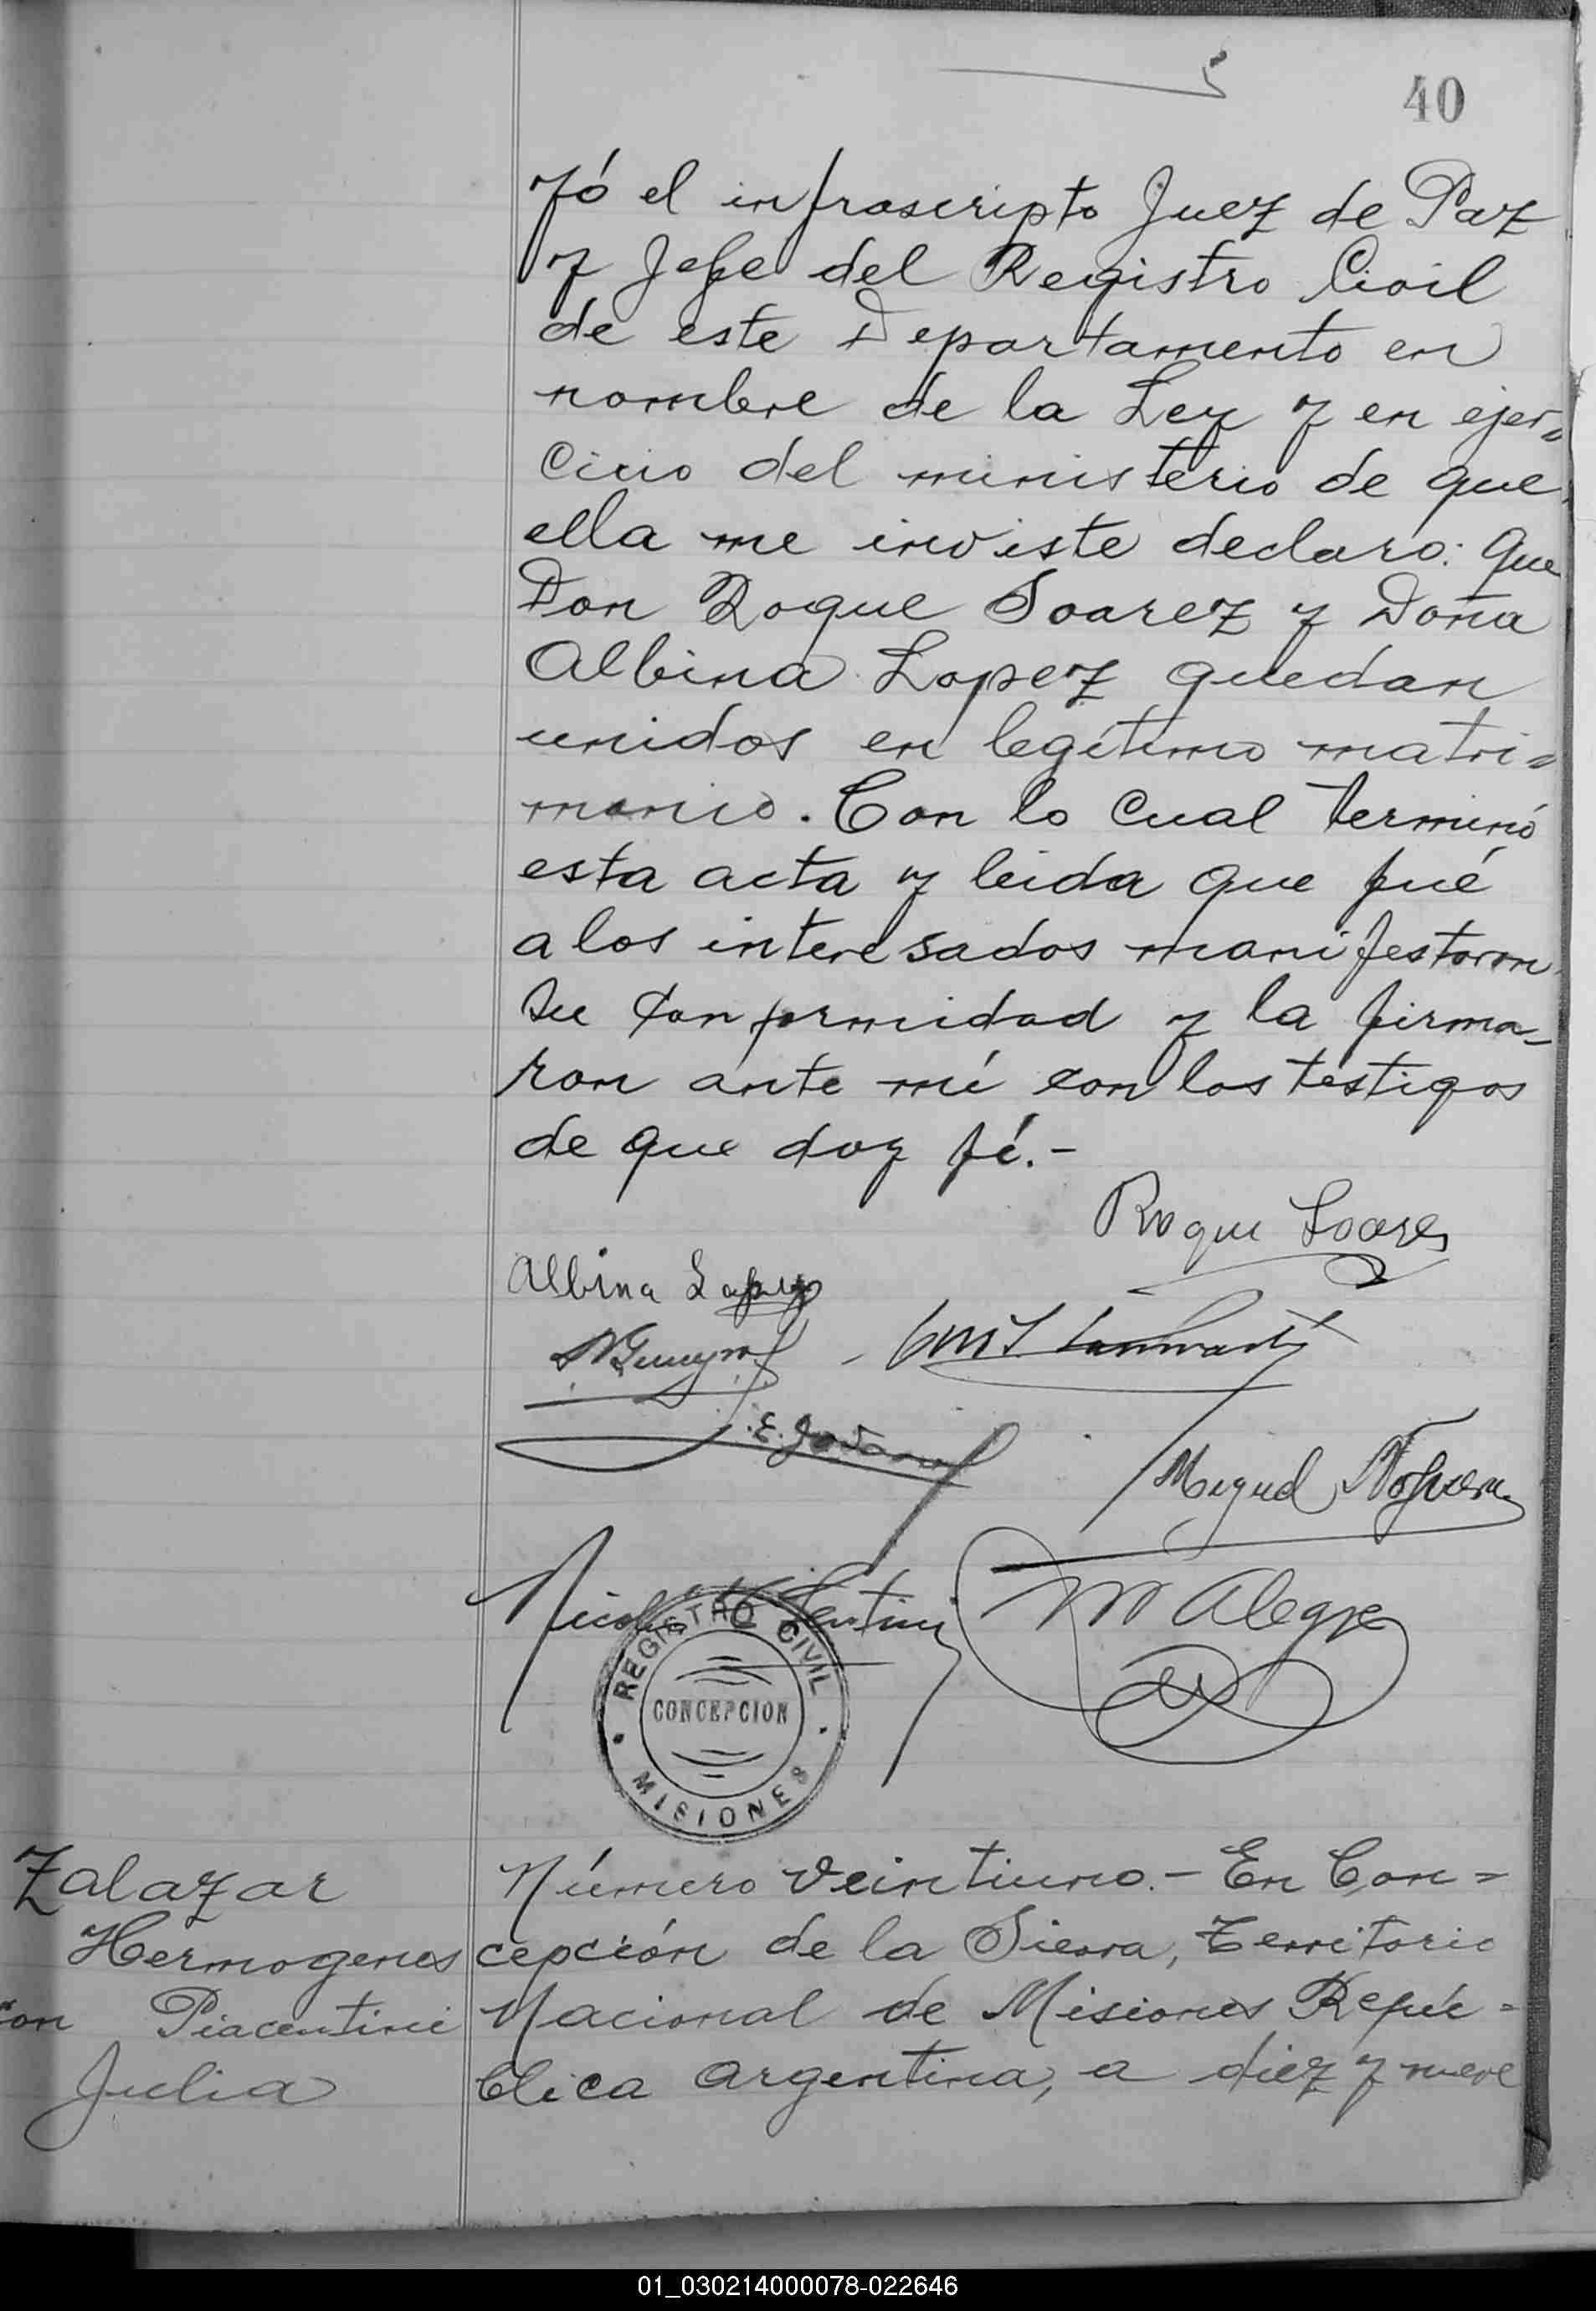 40
Yó el infrascripto Juez de Paz
y Jefe del Registro Civil
de este Departamento en
nombre de la Ley y en ejer=
cicio del ministerio de que
ella me inviste declaro: Que
Don Roque Soarez y Doña
Albina Lopez quedan
unidos en legítimo matri=
monio. Con lo cual terminó
esta acta y leida que fué
a los interesados manifestaron
su conformidad y la firma=
ron ante mí con los testigos
de que doy fé.-
Roque Soares
Albina Lopez
Miguel
M Alegre
REGISTRO CIVIL
CONCEPCION
MISIONES
Zalazar
Hermogenes
con Piacentini
Julia
Número veintiuno.- En Con=
cepción de la Sierra, Territorio
Nacional de Misiones Repú=
blica Argentina, a diez y nueve
01_030214000078-022646